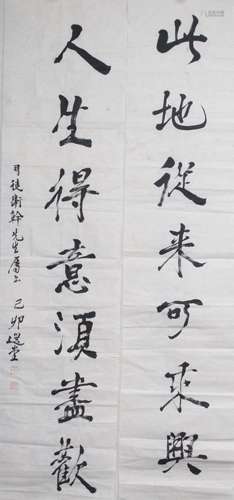 此地從来可乘興
人生得意須盡歡
司徒衛幹先生屬正
己卯選堂